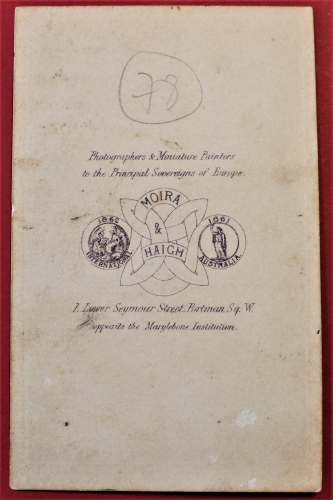 78
Photographers & Miniature Painters
to the Principal Sovereigns of Europe.
MOIRA
&
HAIGH
1862
INTERNATIONAL
1861
AUSTRALIA
1. Lower Seymour Street, Portman Sq. W.
opposite the Marylebone Institution.